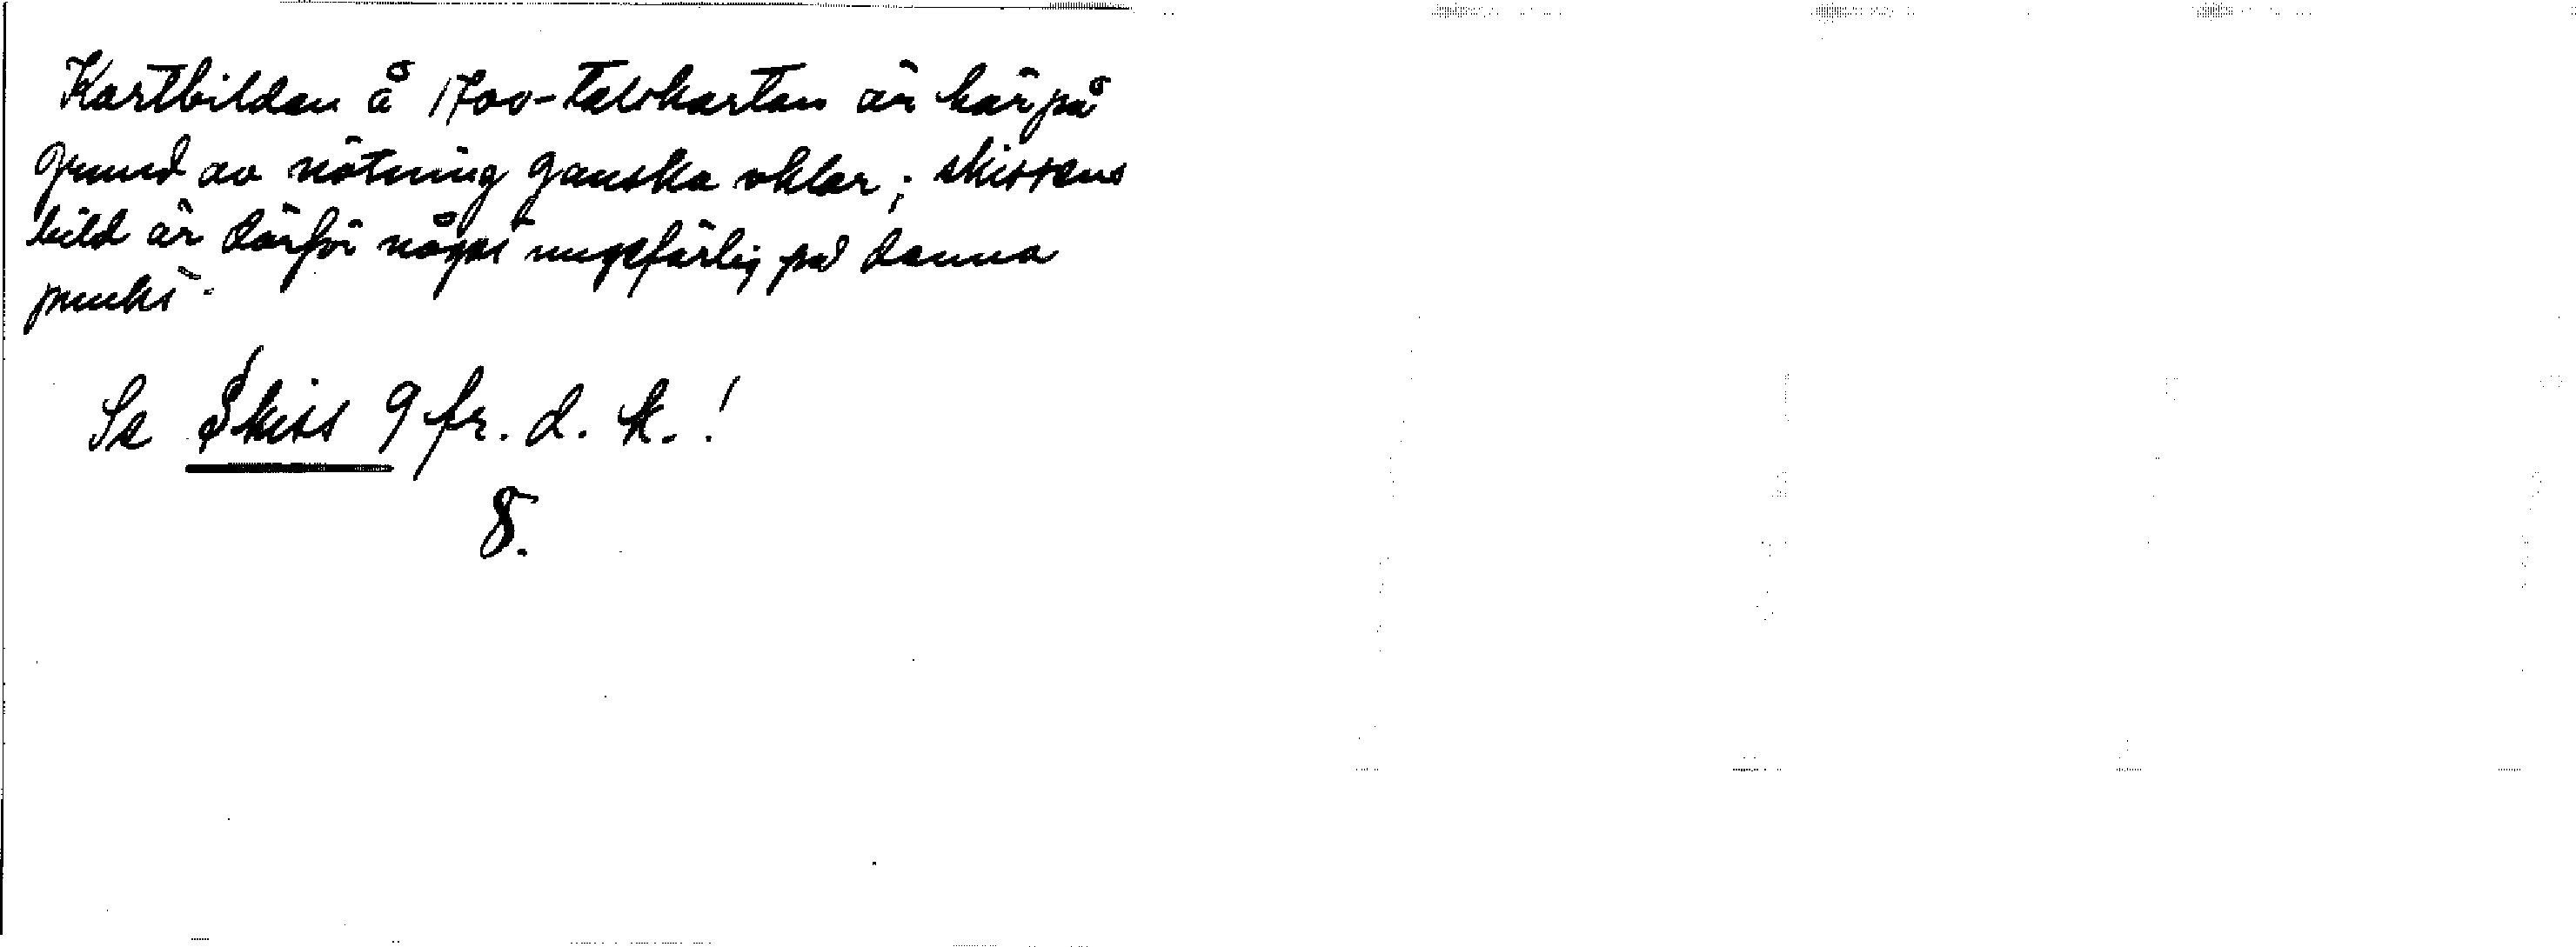 Kartbilden å 1700-talskartan är här på
grund av nötning ganska oklar; skissens
bild är därför något ungefärlig på denna
punkt.
Se Skiss 9 fr. d. k.!
8.